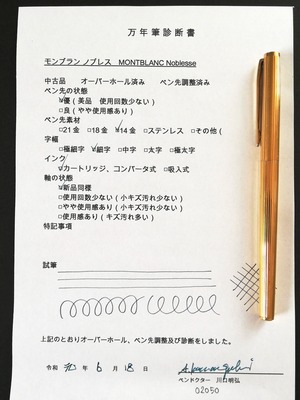 万年筆診断書
モンブラン ノブレス MONTBLANC Noblesse
中古品 オーバーホール済み ペン先調整済み
ペン先の状態
☑優(美品 使用回数少ない)
□良(やや使用感あり)
ペン先素材
□21金 □18金 ☑14金 □ステンレス □その他(
字幅
□極細字 ☑細字 □中字 □太字 □極太字
インク
☑カートリッジ、コンバータ式 □吸入式
軸の状態
☑新品同様
□使用回数少ない(小キズ汚れ少ない)
□やや使用感あり(小キズ汚れ少ない)
□使用感あり(キズ汚れ多い)
特記事項
試筆
上記のとおりオーバーホール、ペン先調整及び診断をしました。
令和 元年 6月 18日
ペンドクター 川口明弘
02050